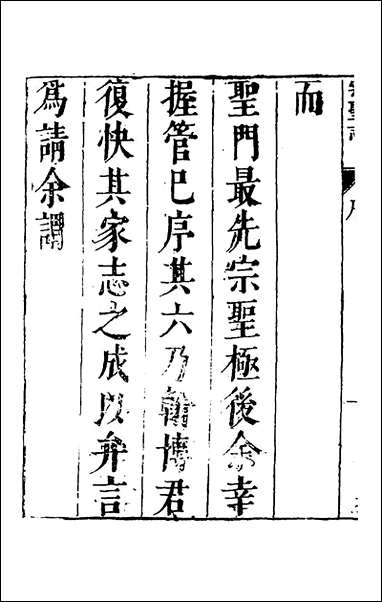 而
聖門最先宗聖極後余幸
握管巳序其六乃翰博君
復快其家志之成以弁言
為請余謂
序